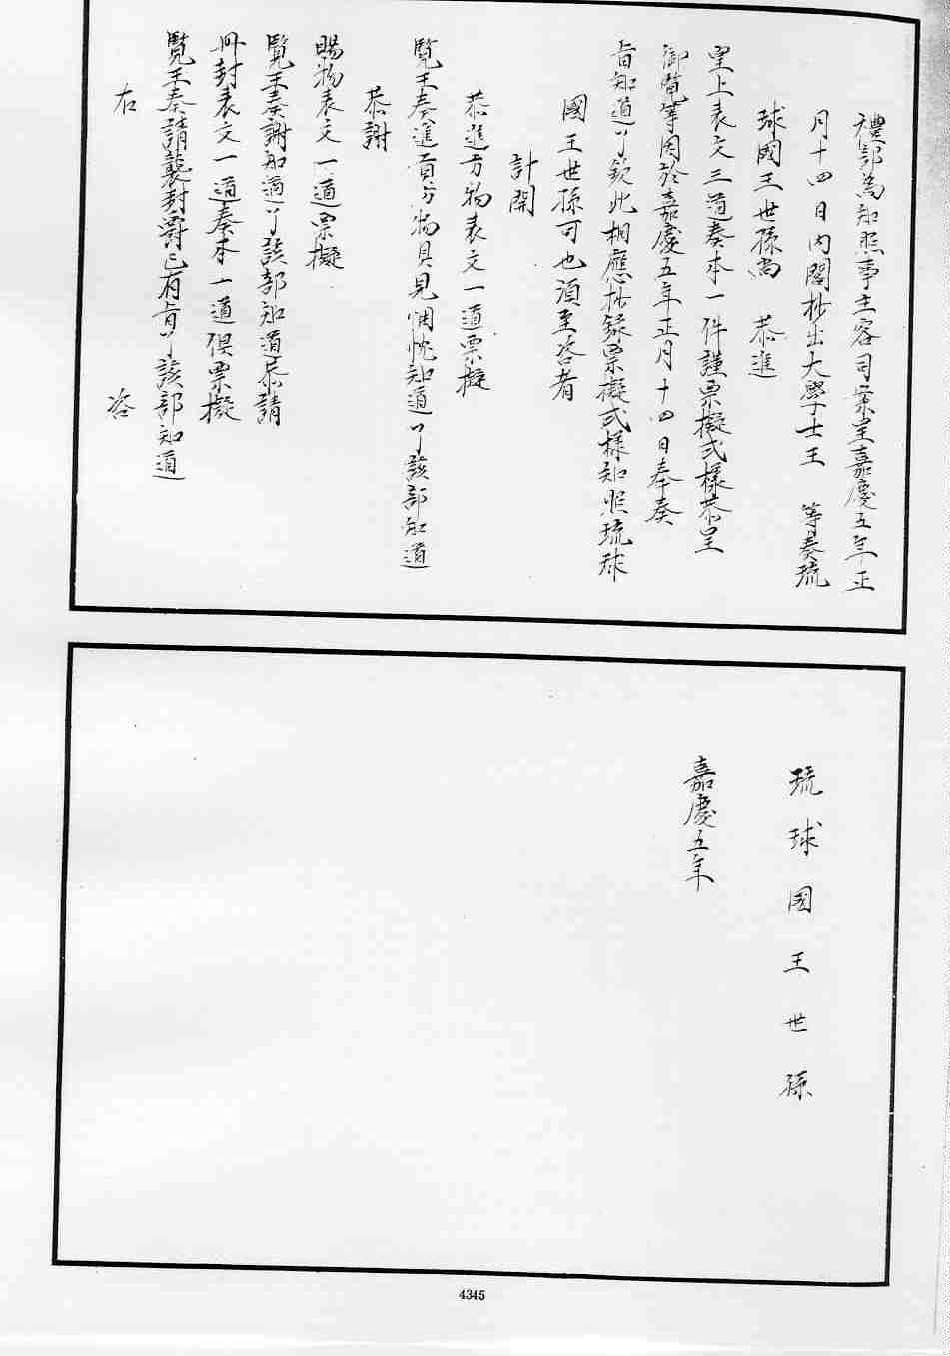 禮部為知照事主客司案呈嘉慶五年正
月十四日內閣抄出大學士王　等奏琉
球國王世孫尚　恭進
皇上表文三道奏本一件謹票擬式樣恭呈
御覽等因於嘉慶五年正月十四日奉奏
旨知道了欽此相應抄錄票擬式樣知照琉球
國王世孫可也須至咨者
計開
恭進方物表文一道票擬
覽王奏進貢方物具見悃忱知道了該部知道
恭謝
賜物表文一道票擬
覽王奏謝知道了該部知道恭請
冊封表文一道奏本一道俱票擬
覽王奏請襲封爵已有旨了該部知道
右　咨
琉球國王世孫
嘉慶五年
4345